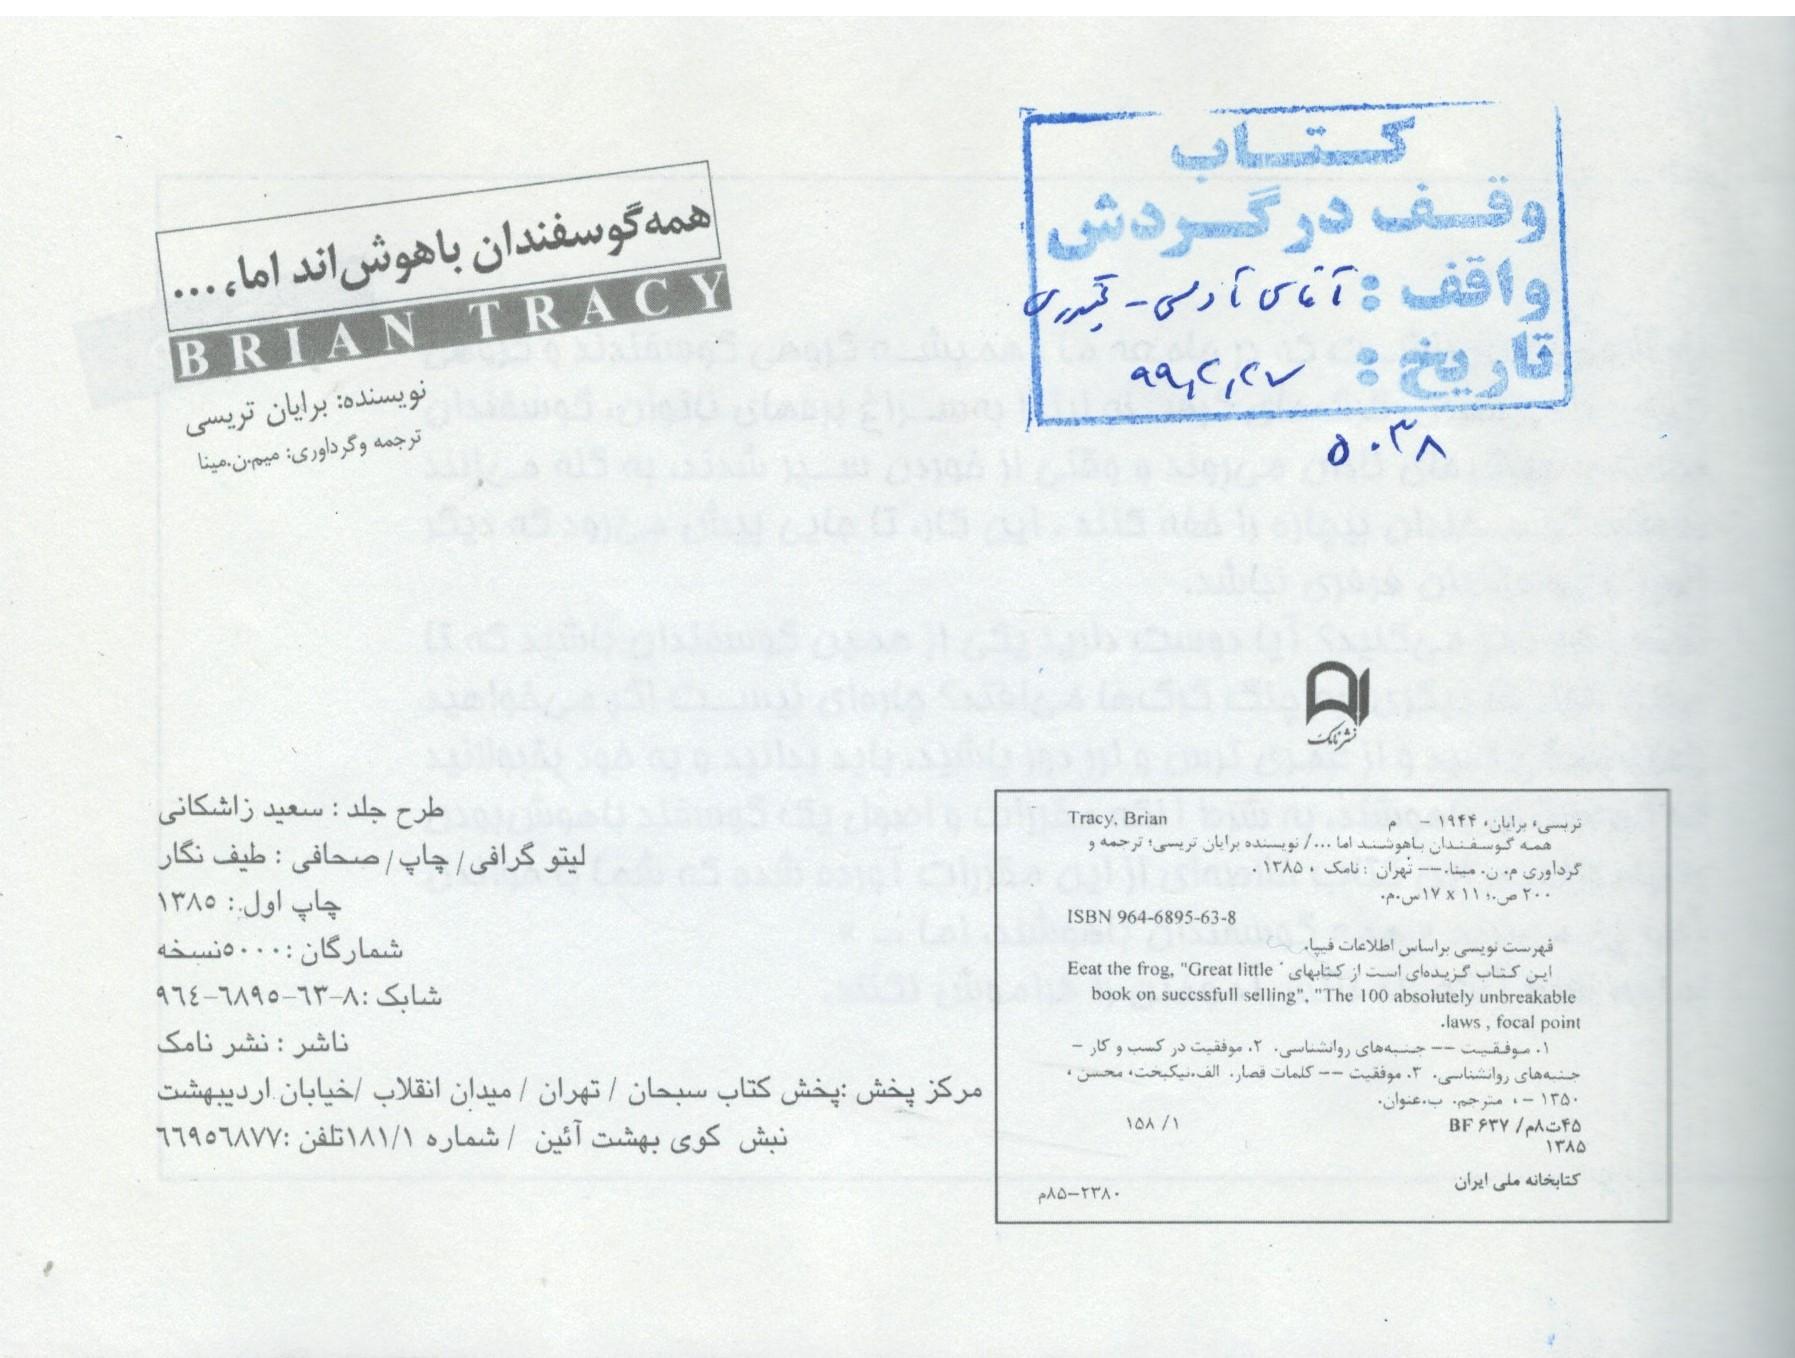 کتاب
وقف در گردش
واقف : آقای
تاریخ : ۹۹,۲,۲۷
۵۰۳۸
همه گوسفندان باهوش‌اند اما، ...
BRIAN TRACY
نویسنده: برایان تریسی
ترجمه وگرداوری: میم.ن.مینا
نشر نامک
طرح جلد : سعید زاشکانی
لیتو گرافی/ چاپ/ صحافی : طیف نگار
چاپ اول: ۱۳۸۵
شمارگان :۵۰۰۰نسخه
شابک :۸-۶۳-۶۸۹۵-۹۶۴
ناشر : نشر نامک
مرکز پخش :پخش کتاب سبحان / تهران / میدان انقلاب /خیابان اردیبهشت
نبش کوی بهشت آئین / شماره ۱۸۱/۱تلفن :۶۶۹۵۶۸۷۷
تریسی، برایان، ۱۹۴۴ - م Tracy, Brian
همه گوسفندان باهوشند اما .../ نویسنده برایان تریسی؛ ترجمه و
گردآوری م. ن. مینا.-- تهران : نامک ، ۱۳۸۵ .
۲۰۰ ص.؛ ۱۱ x ۱۷س.م.
ISBN 964-6895-63-8
فهرست نویسی براساس اطلاعات فیپا.
این کتاب گزیده‌ای است از کتابهای Eeat the frog, "Great little
book on succssfull selling", "The 100 absolutely unbreakable
laws , focal point.
۱. موفقیت -- جنبه‌های روانشناسی. ۲. موفقیت در کسب و کار -
جنبه‌های روانشناسی. ۳. موفقیت -- کلمات قصار. الف.نیکبخت، محسن ،
۱۳۵۰ - ، مترجم. ب.عنوان.
۴۵ت۸م/ BF ۶۳۷ ۱۵۸ /۱
۱۳۸۵
کتابخانه ملی ایران
۸۵-۲۳۸۰م